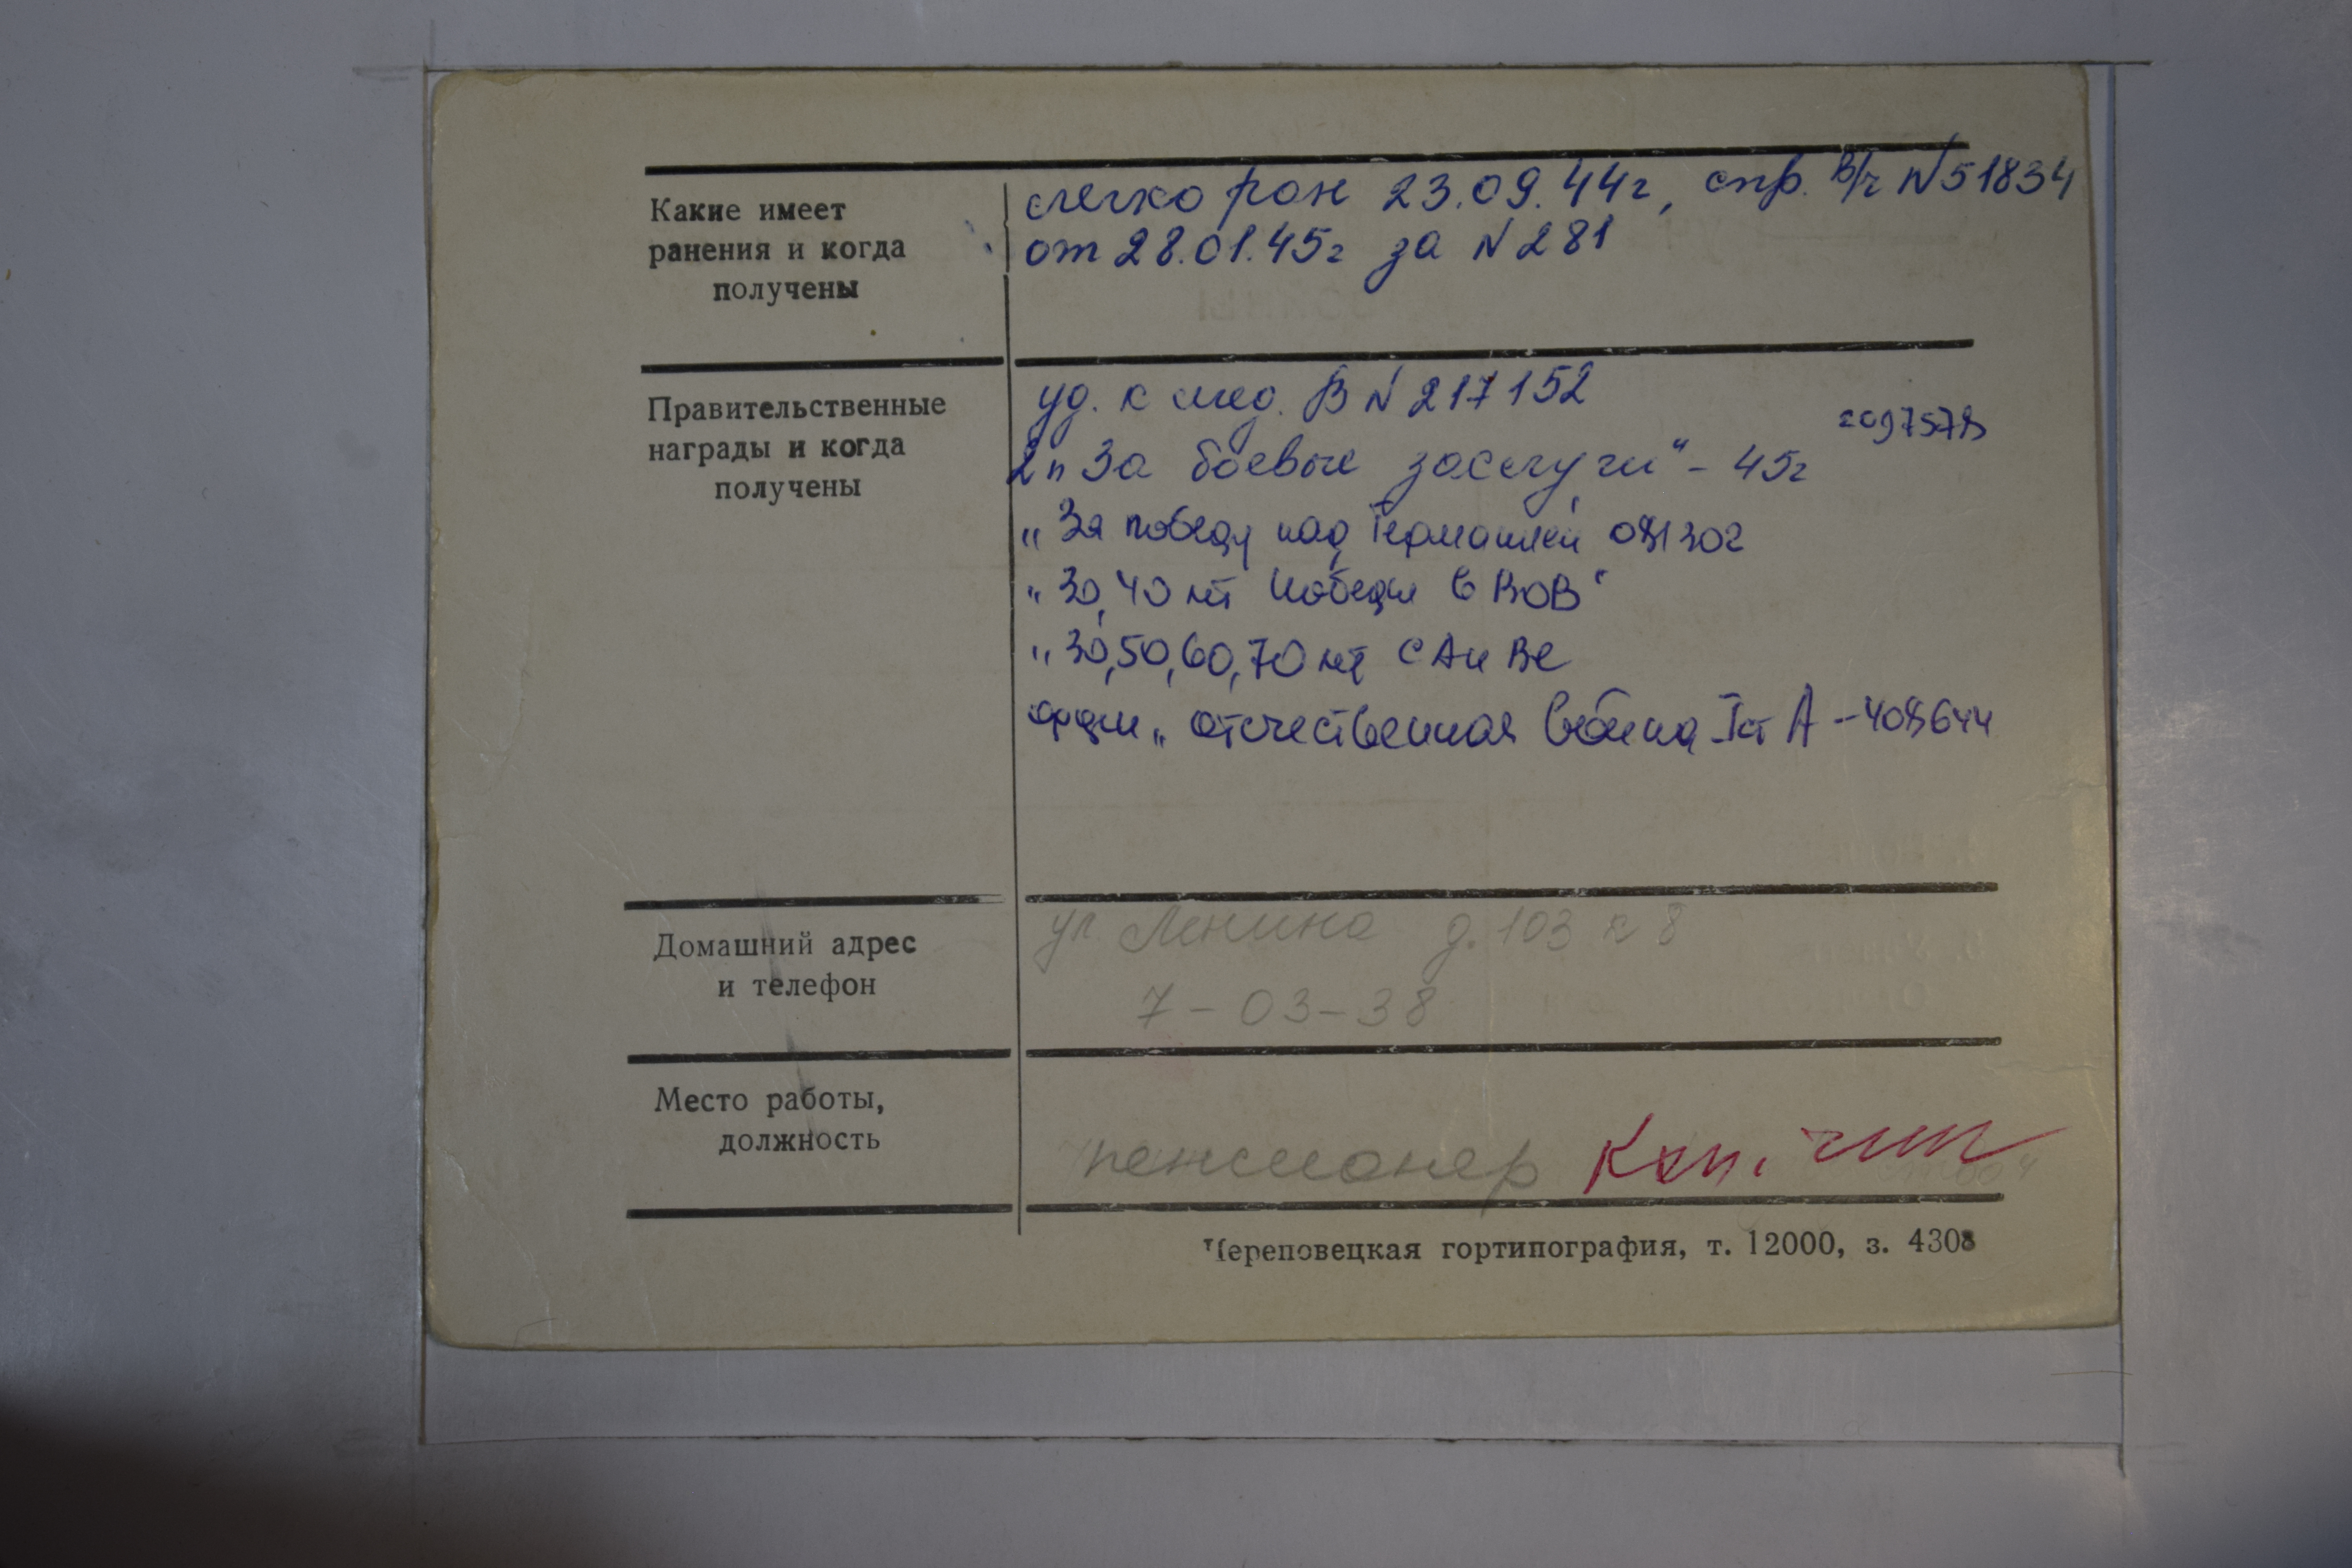 Какие имеет
ранения и когда
получены
легко ран 23.09.44г, спр. в/ч N51834
от 28.01.45г за N281
Правительственные
награды и когда
получены
уд. к мед. В N 217152
2097578
2 п За боевые заслуги" - 45г
„За победу над Германией 081302
„30,40 лет победы в ВОВ"
„30,50,60,70 лет САиВС
орден „отечественная война Iст А - 408644
Домашний адрес
и телефон
ул Ленина д. 103 к 8
7-03-38
Место работы,
должность
пенсионер
Череповецкая гортипография, т. 12000, з. 4308